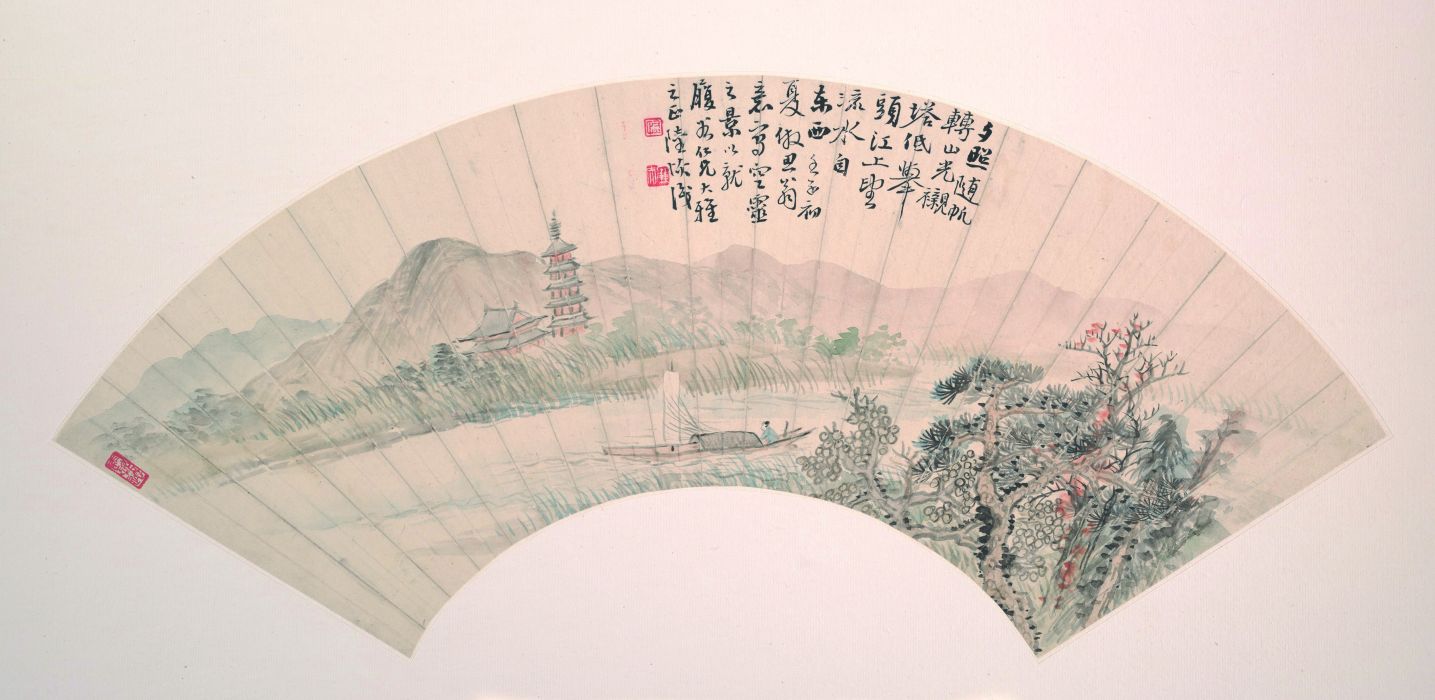 夕照随帆
轉山光襯
塔低舉
頭江上望
流水自
東西壬子初
夏倣思翁
意寫空靈
之景以就
腹翁仁兄大雅
之正陸恢識